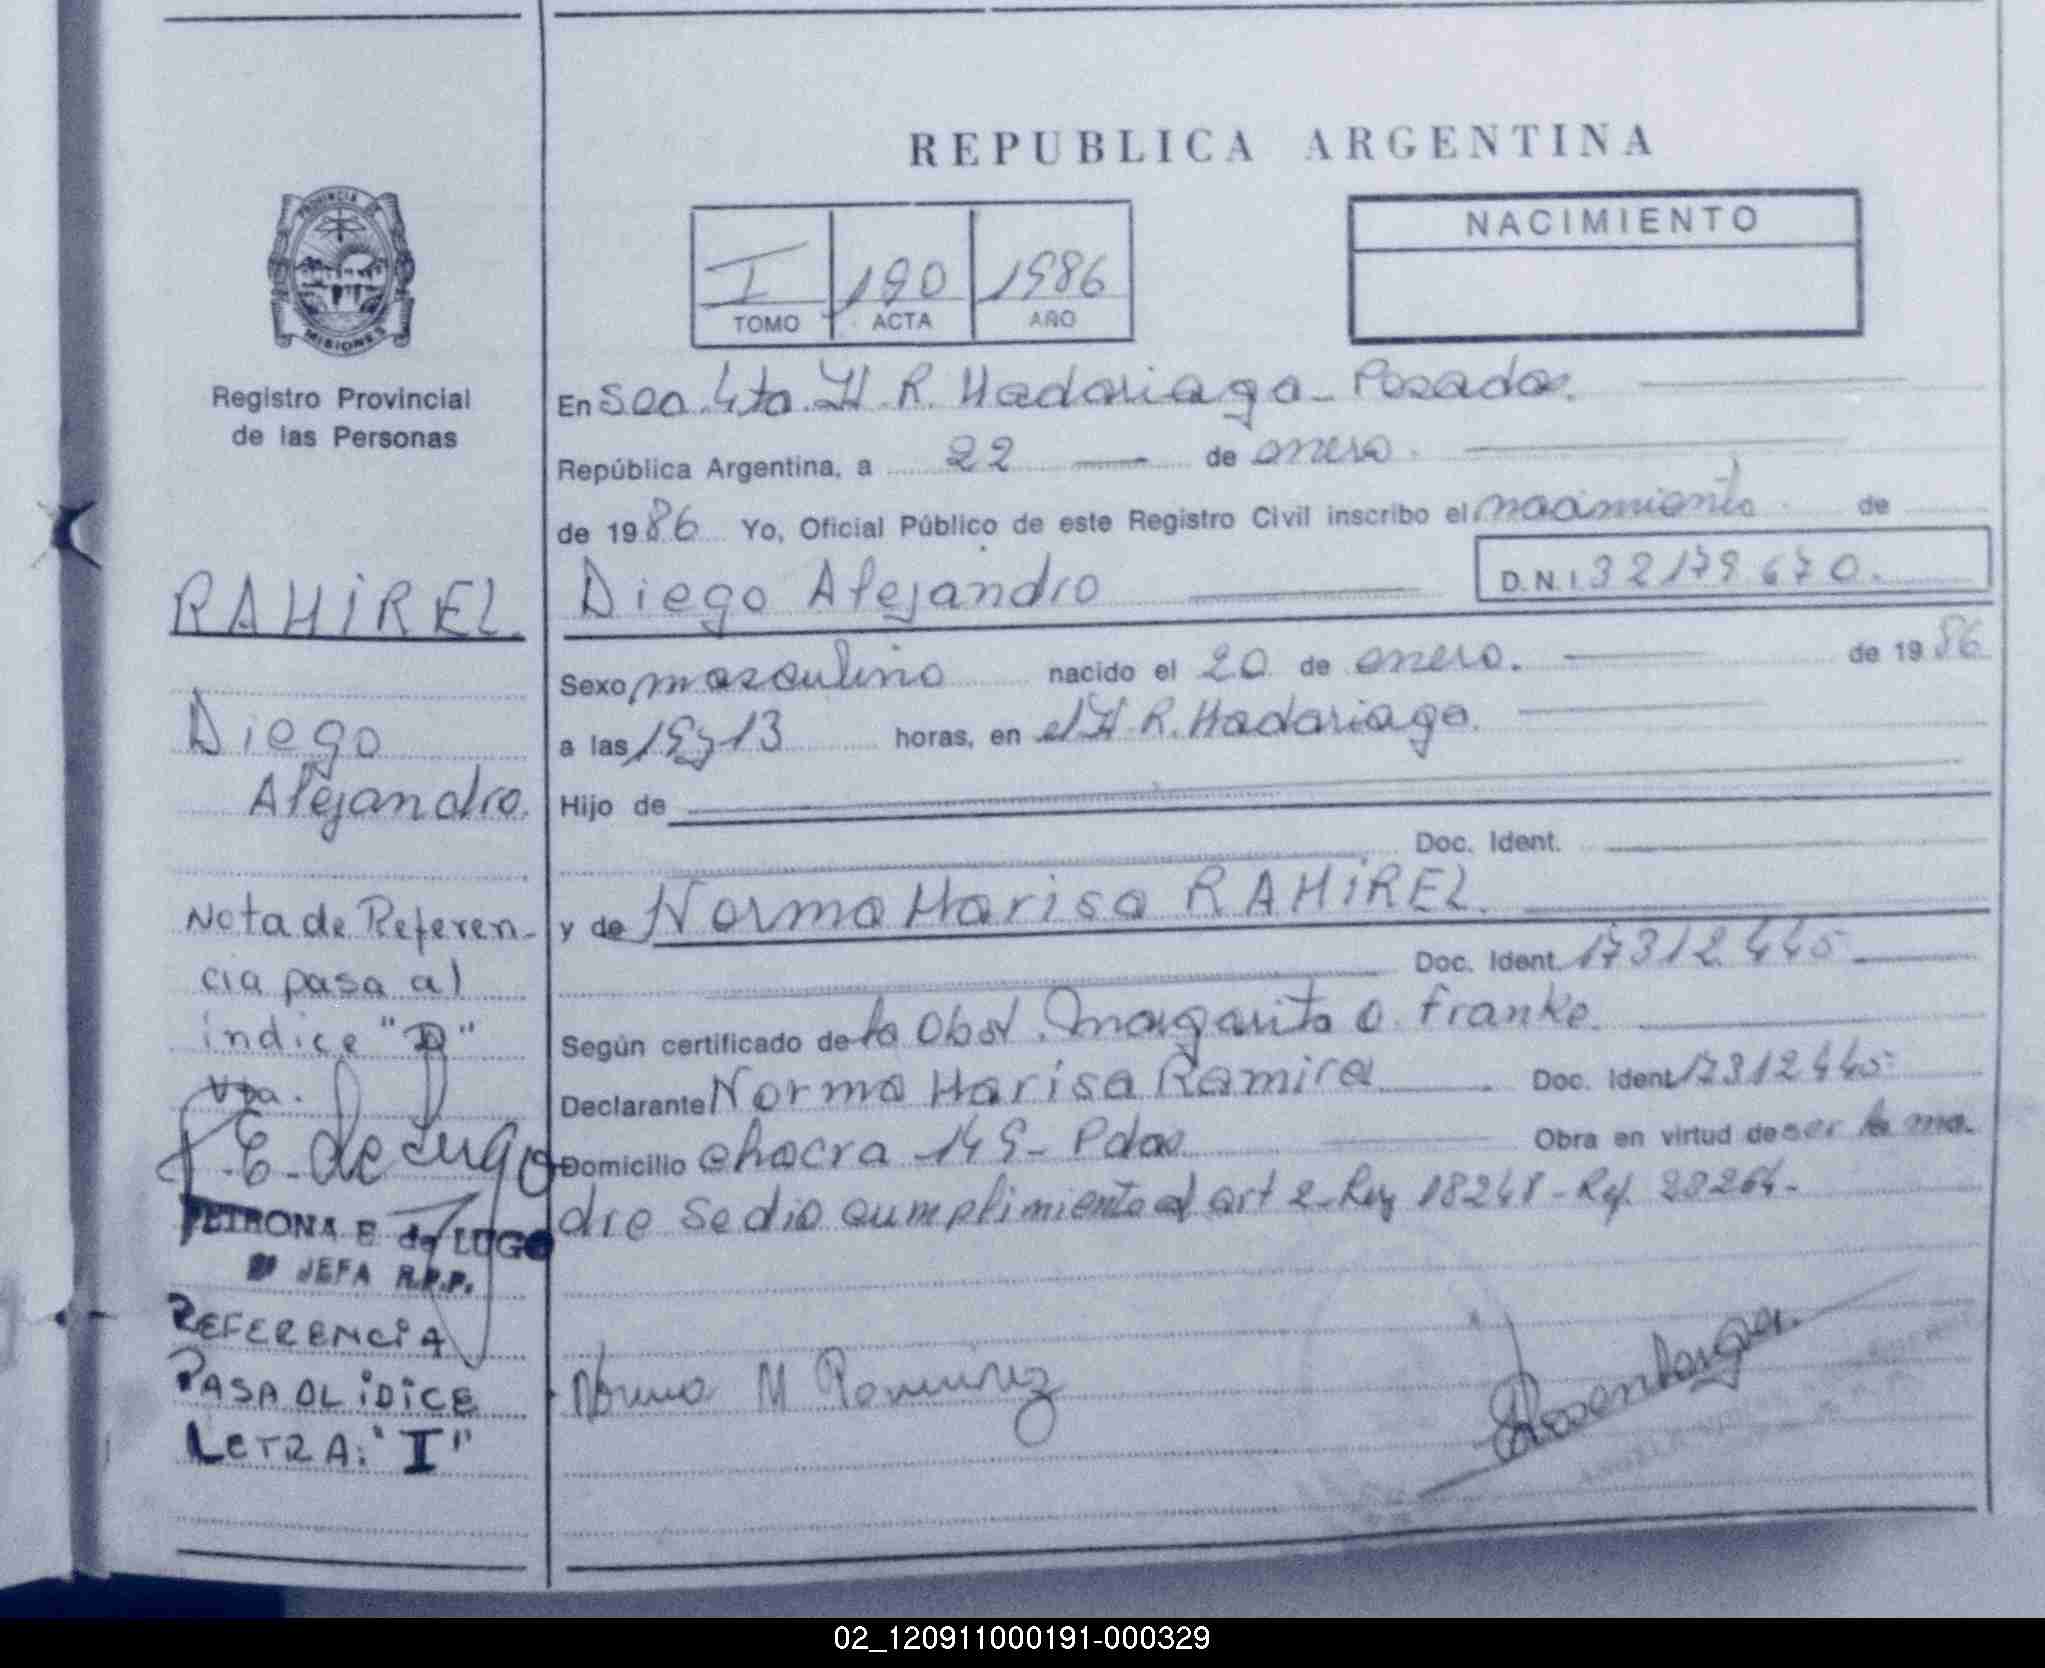 REPUBLICA ARGENTINA
PROVINCIA DE
MISIONES
Registro Provincial
de las Personas
I 190 1986
TOMO ACTA AÑO
NACIMIENTO
En Sec. 4ta. H. R. Madariaga - Posadas.
República Argentina, a 22 de enero.
de 1986 Yo, Oficial Público de este Registro Civil inscribo el nacimiento de
Diego Alejandro D.N.I. 32179670.
Sexo masculino nacido el 20 de enero. de 1986
a las 19 y 13 horas, en el H. R. Madariaga.
Hijo de
Doc. Ident.
y de Norma Marisa RAMIREZ.
Doc. Ident. 17312445
Según certificado de la Obst. Margarita O. Franke.
Declarante Norma Marisa Ramirez Doc. Ident. 17312445
Domicilio chacra 149 - Pdas. Obra en virtud de ser la ma-
dre Se dio cumplimiento al art 2 - Ley 18248 - Ref. 20264 -
Norma M Ramirez
RAMIREZ.
Diego
Alejandro.
Nota de Referen-
cia pasa al
indice "D"
Vta.
E. de Lugo
PETRONA E de LUGO
JEFA R.P.P.
REFERENCIA
PASA OL iDiCE
LETRA: "I"
02_120911000191-000329